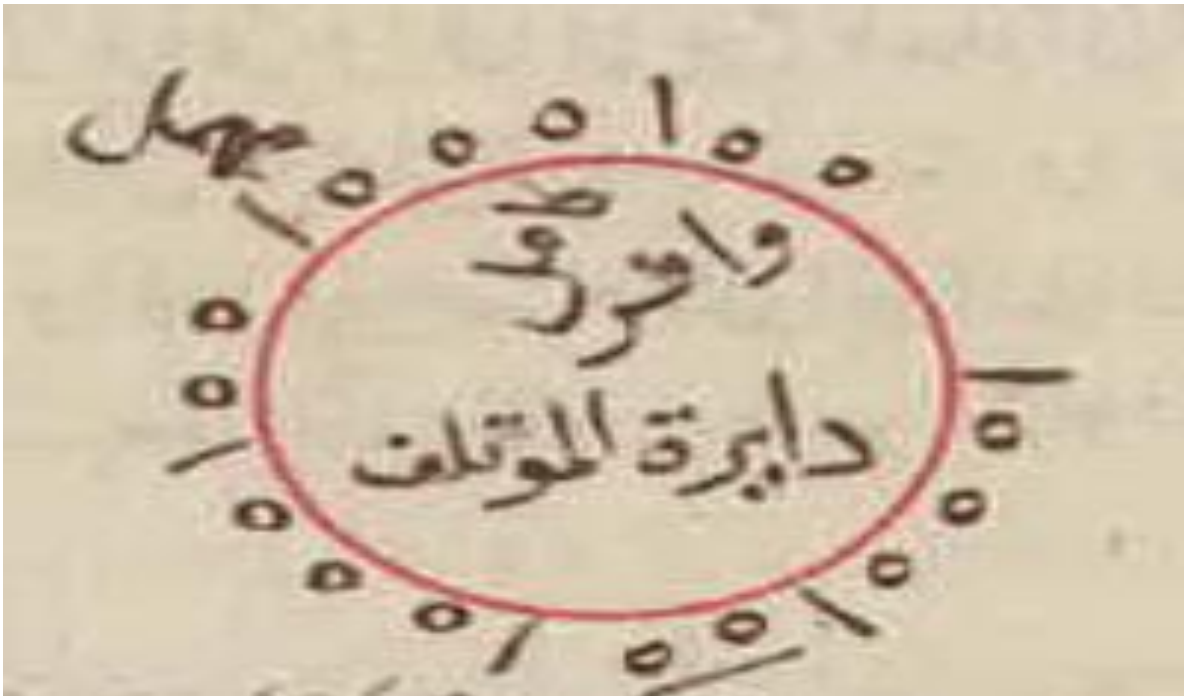 مهمل
وافر
كامل
دايرة الموتلف